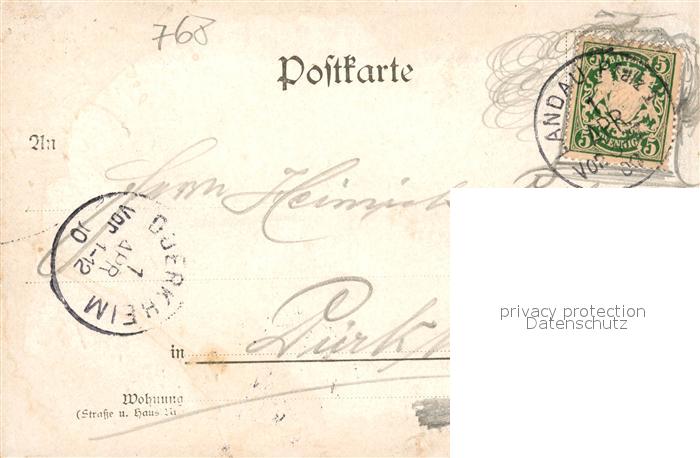 768
Postkarte
BAYERN
5 5
PFENNIG
5 5
LANDAU
1
APR
VOR
An
Herrn Heinrich
DUERKHEIM
1
APR
Vor 11-12
in Dürk
Wohnung
(Straße u. Haus Nr
privacy protection
Datenschutz